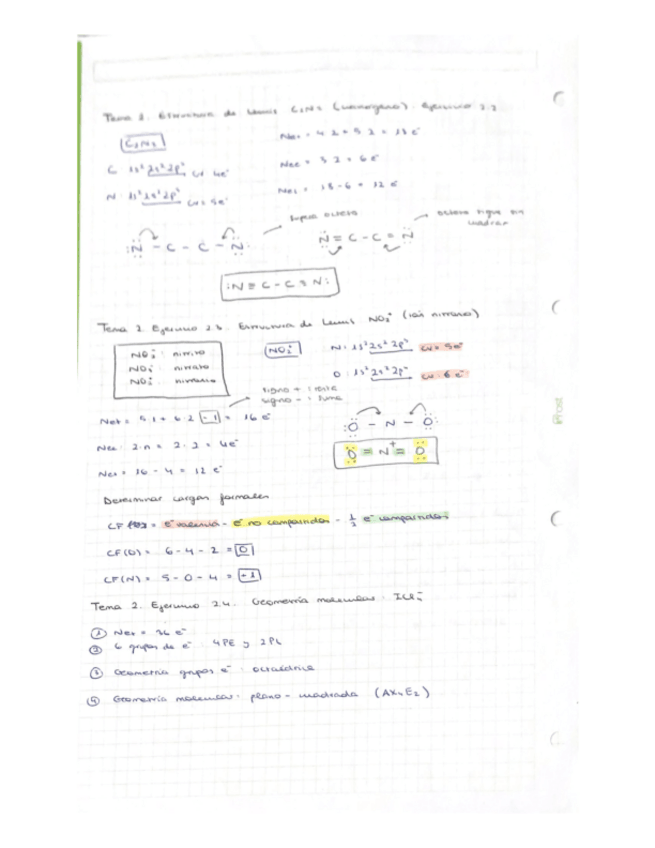 Tema 2. Estructura de Lewis C2N2 (cianógeno). Ejercicio 2.2
C2N2
Net = 4·2 + 5·2 = 18 e-
C: 1s² 2s² 2p² cv 4e-
Nec = 3·2 = 6 e-
N: 1s² 2s² 2p³ cv = 5e-
Ner = 18 - 6 = 12 e-
:N - C - C - N:
N = C - C = N
:N ≡ C - C ≡ N:
Tema 2. Ejercicio 2.3. Estructura de Lewis NO2+ (ión nitronio)
NO2-: nitrito
NO3-: nitrato
NO2+: nitronio
NO2+
N: 1s² 2s² 2p³ cv = 5e-
O: 1s² 2s² 2p⁴ cv: 6 e-
signo + : resta
signo - : suma
Net = 5·1 + 6·2 - 1 = 16 e-
Nec: 2·n = 2·2 = 4e-
Ner = 16 - 4 = 12 e-
:O - N - O:
O = N+ = O
Determinar cargas formales
CF = e- valencia - e- no compartidos - 1/2 e- compartidos
CF(O) = 6 - 4 - 2 = 0
CF(N) = 5 - 0 - 4 = +1
Tema 2. Ejercicio 2.4. Geometría molecular: ICl4-
① Net = 36 e-
② 6 grupos de e-: 4PE y 2PL
③ Geometría grupos e-: octaédrica
④ Geometría molecular: plano-cuadrada (AX4E2)